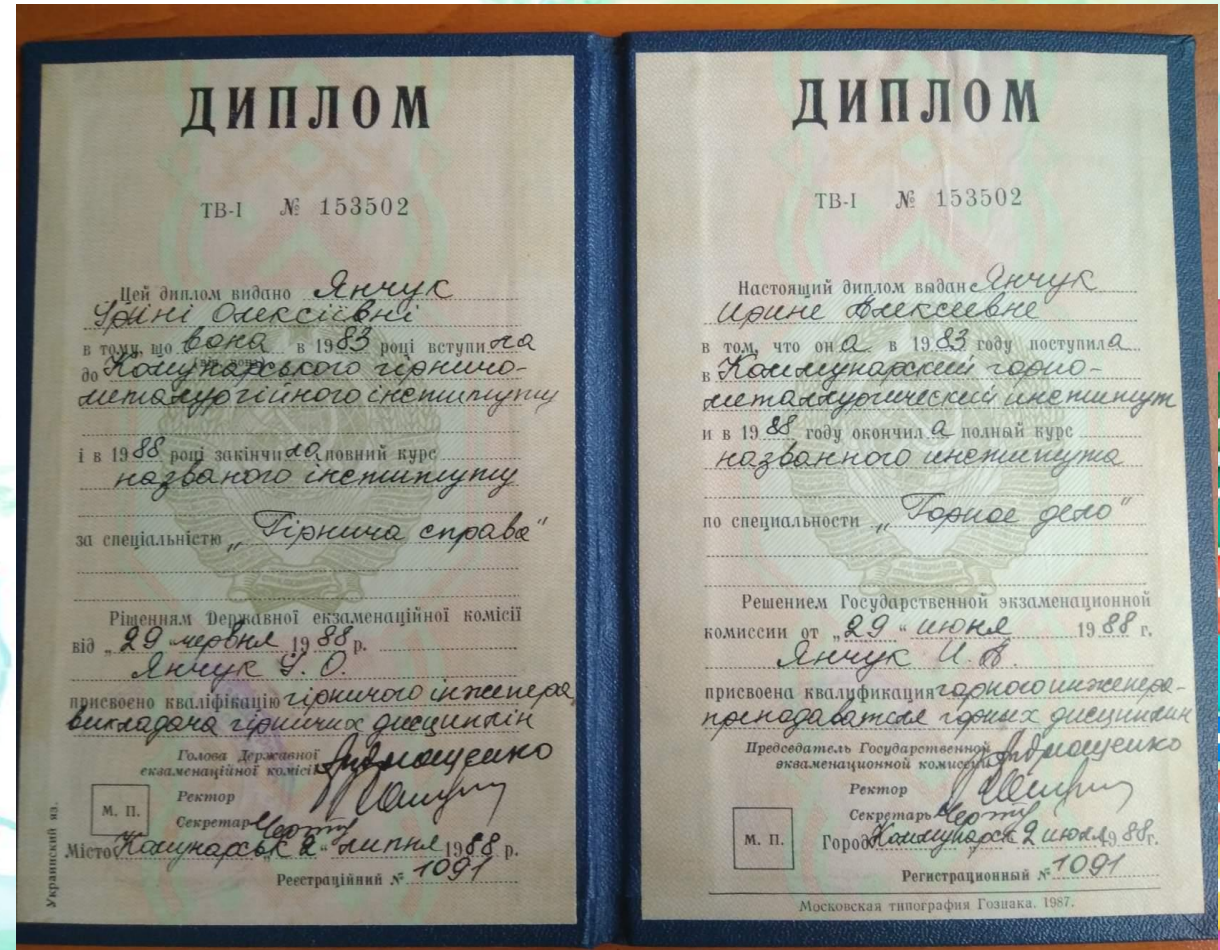 ДИПЛОМ
ТВ-I № 153502
Цей диплом видано Янчук
Ірині Олексіївні
в тому, що вона в 1983 році вступила
до Комунарського гірничо-
металургійного інституту
і в 1988 році закінчила повний курс
названого інституту
за спеціальністю „Гірнича справа"
Рішенням Державної екзаменаційної комісії
від „29" червня 1988 р.
Янчук І. О.
присвоєно кваліфікацію гірничого інженера
викладача гірничих дисциплін
Голова Державної
екзаменаційної комісії
Ректор
Секретар
М. П.
Місто Комунарськ 2 „ липня 1988 р.
Реєстраційний № 1091
Украинский яз.
ДИПЛОМ
ТВ-I № 153502
Настоящий диплом выдан Янчук
Ирине Алексеевне
в том, что она в 1983 году поступила
в Коммунарский горно-
металлургический институт
и в 1988 году окончила полный курс
названного института
по специальности „Горное дело"
Решением Государственной экзаменационной
комиссии от „29" июня 1988 г.
Янчук И. А.
присвоена квалификация горного инженера-
преподавателя горных дисциплин
Председатель Государственной
экзаменационной комиссии
Ректор
Секретарь
М. П.
Город Коммунарск 2 июля 1988г.
Регистрационный № 1091
Московская типография Гознака. 1987.